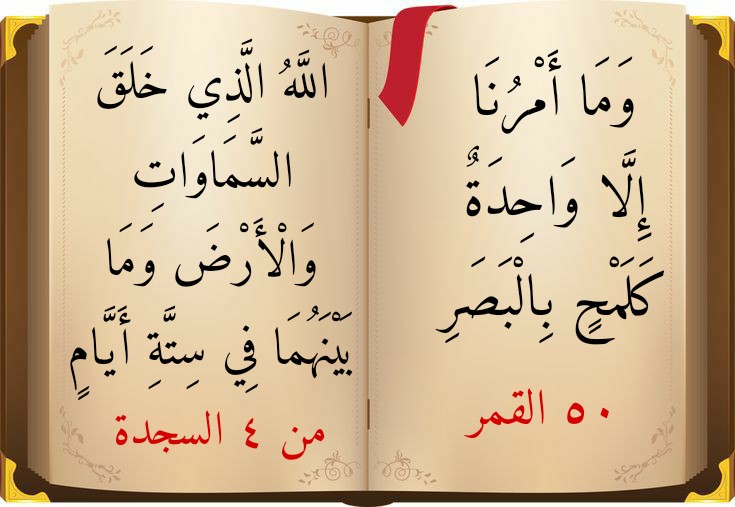 وَمَا أَمْرُنَا
إِلَّا وَاحِدَةٌ
كَلَمْحٍ بِالْبَصَرِ
٥٠ القمر
اللَّهُ الَّذِي خَلَقَ
السَّمَاوَاتِ
وَالْأَرْضَ وَمَا
بَيْنَهُمَا فِي سِتَّةِ أَيَّامٍ
من ٤ السجدة